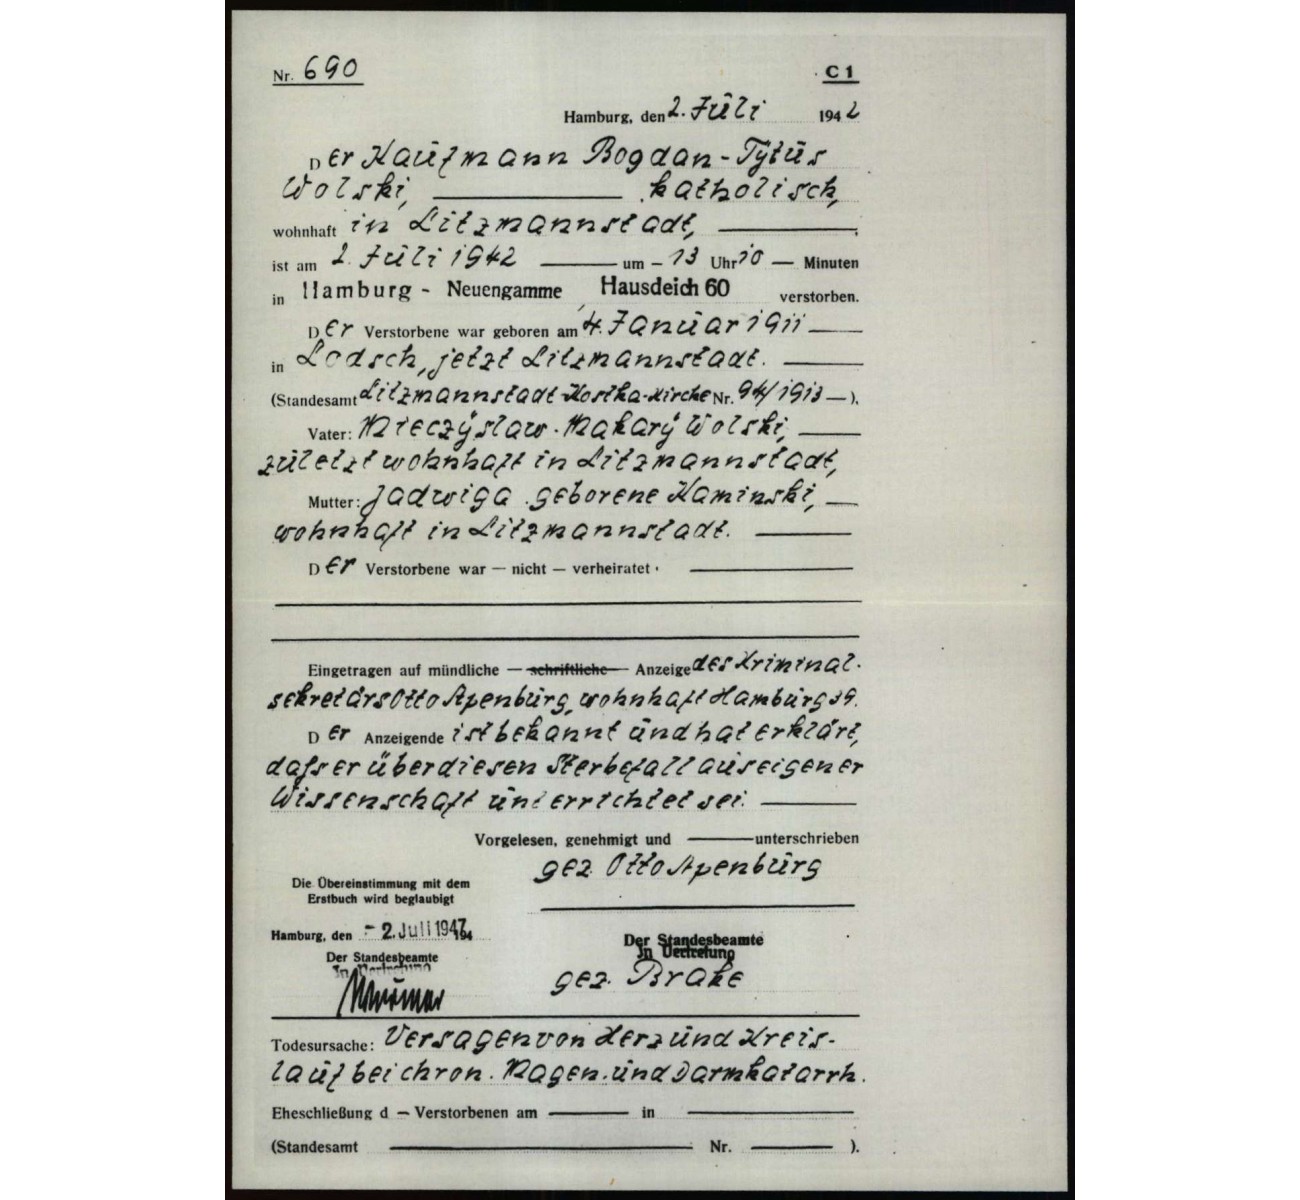 Nr. 690
C 1
Hamburg, den 2. Juli 1942
Der Kaufmann Bogdan-Tytus
Wolski, katholisch,
wohnhaft in Litzmannstadt,
ist am 2. Juli 1942 um 13 Uhr 10 Minuten
in Hamburg - Neuengamme Hausdeich 60 verstorben.
Der Verstorbene war geboren am 4. Januar 1911
in Lodsch, jetzt Litzmannstadt.
(Standesamt Litzmannstadt-Kostka-Kirche Nr. 94/1913 — ).
Vater: Mieczyslaw-Makary Wolski,
zuletzt wohnhaft in Litzmannstadt,
Mutter: Jadwiga geborene Kaminski,
wohnhaft in Litzmannstadt.
Der Verstorbene war — nicht — verheiratet.
Eingetragen auf mündliche — schriftliche — Anzeige des Kriminal-
sekretärs Otto Apenburg, wohnhaft Hamburg 39.
Der Anzeigende ist bekannt und hat erklärt,
daß er über diesen Sterbefall aus eigener
Wissenschaft unterrichtet sei.
Vorgelesen, genehmigt und unterschrieben
gez. Otto Apenburg
Die Übereinstimmung mit dem
Erstbuch wird beglaubigt
Hamburg, den - 2. Juli 1942 194
Der Standesbeamte
In Vertretung
Der Standesbeamte
In Vertretung
gez. Brake
Todesursache: Versagen von Herz und Kreis-
lauf bei chron. Magen- und Darmkatarrh.
Eheschließung d — Verstorbenen am — in
(Standesamt — Nr. — ).